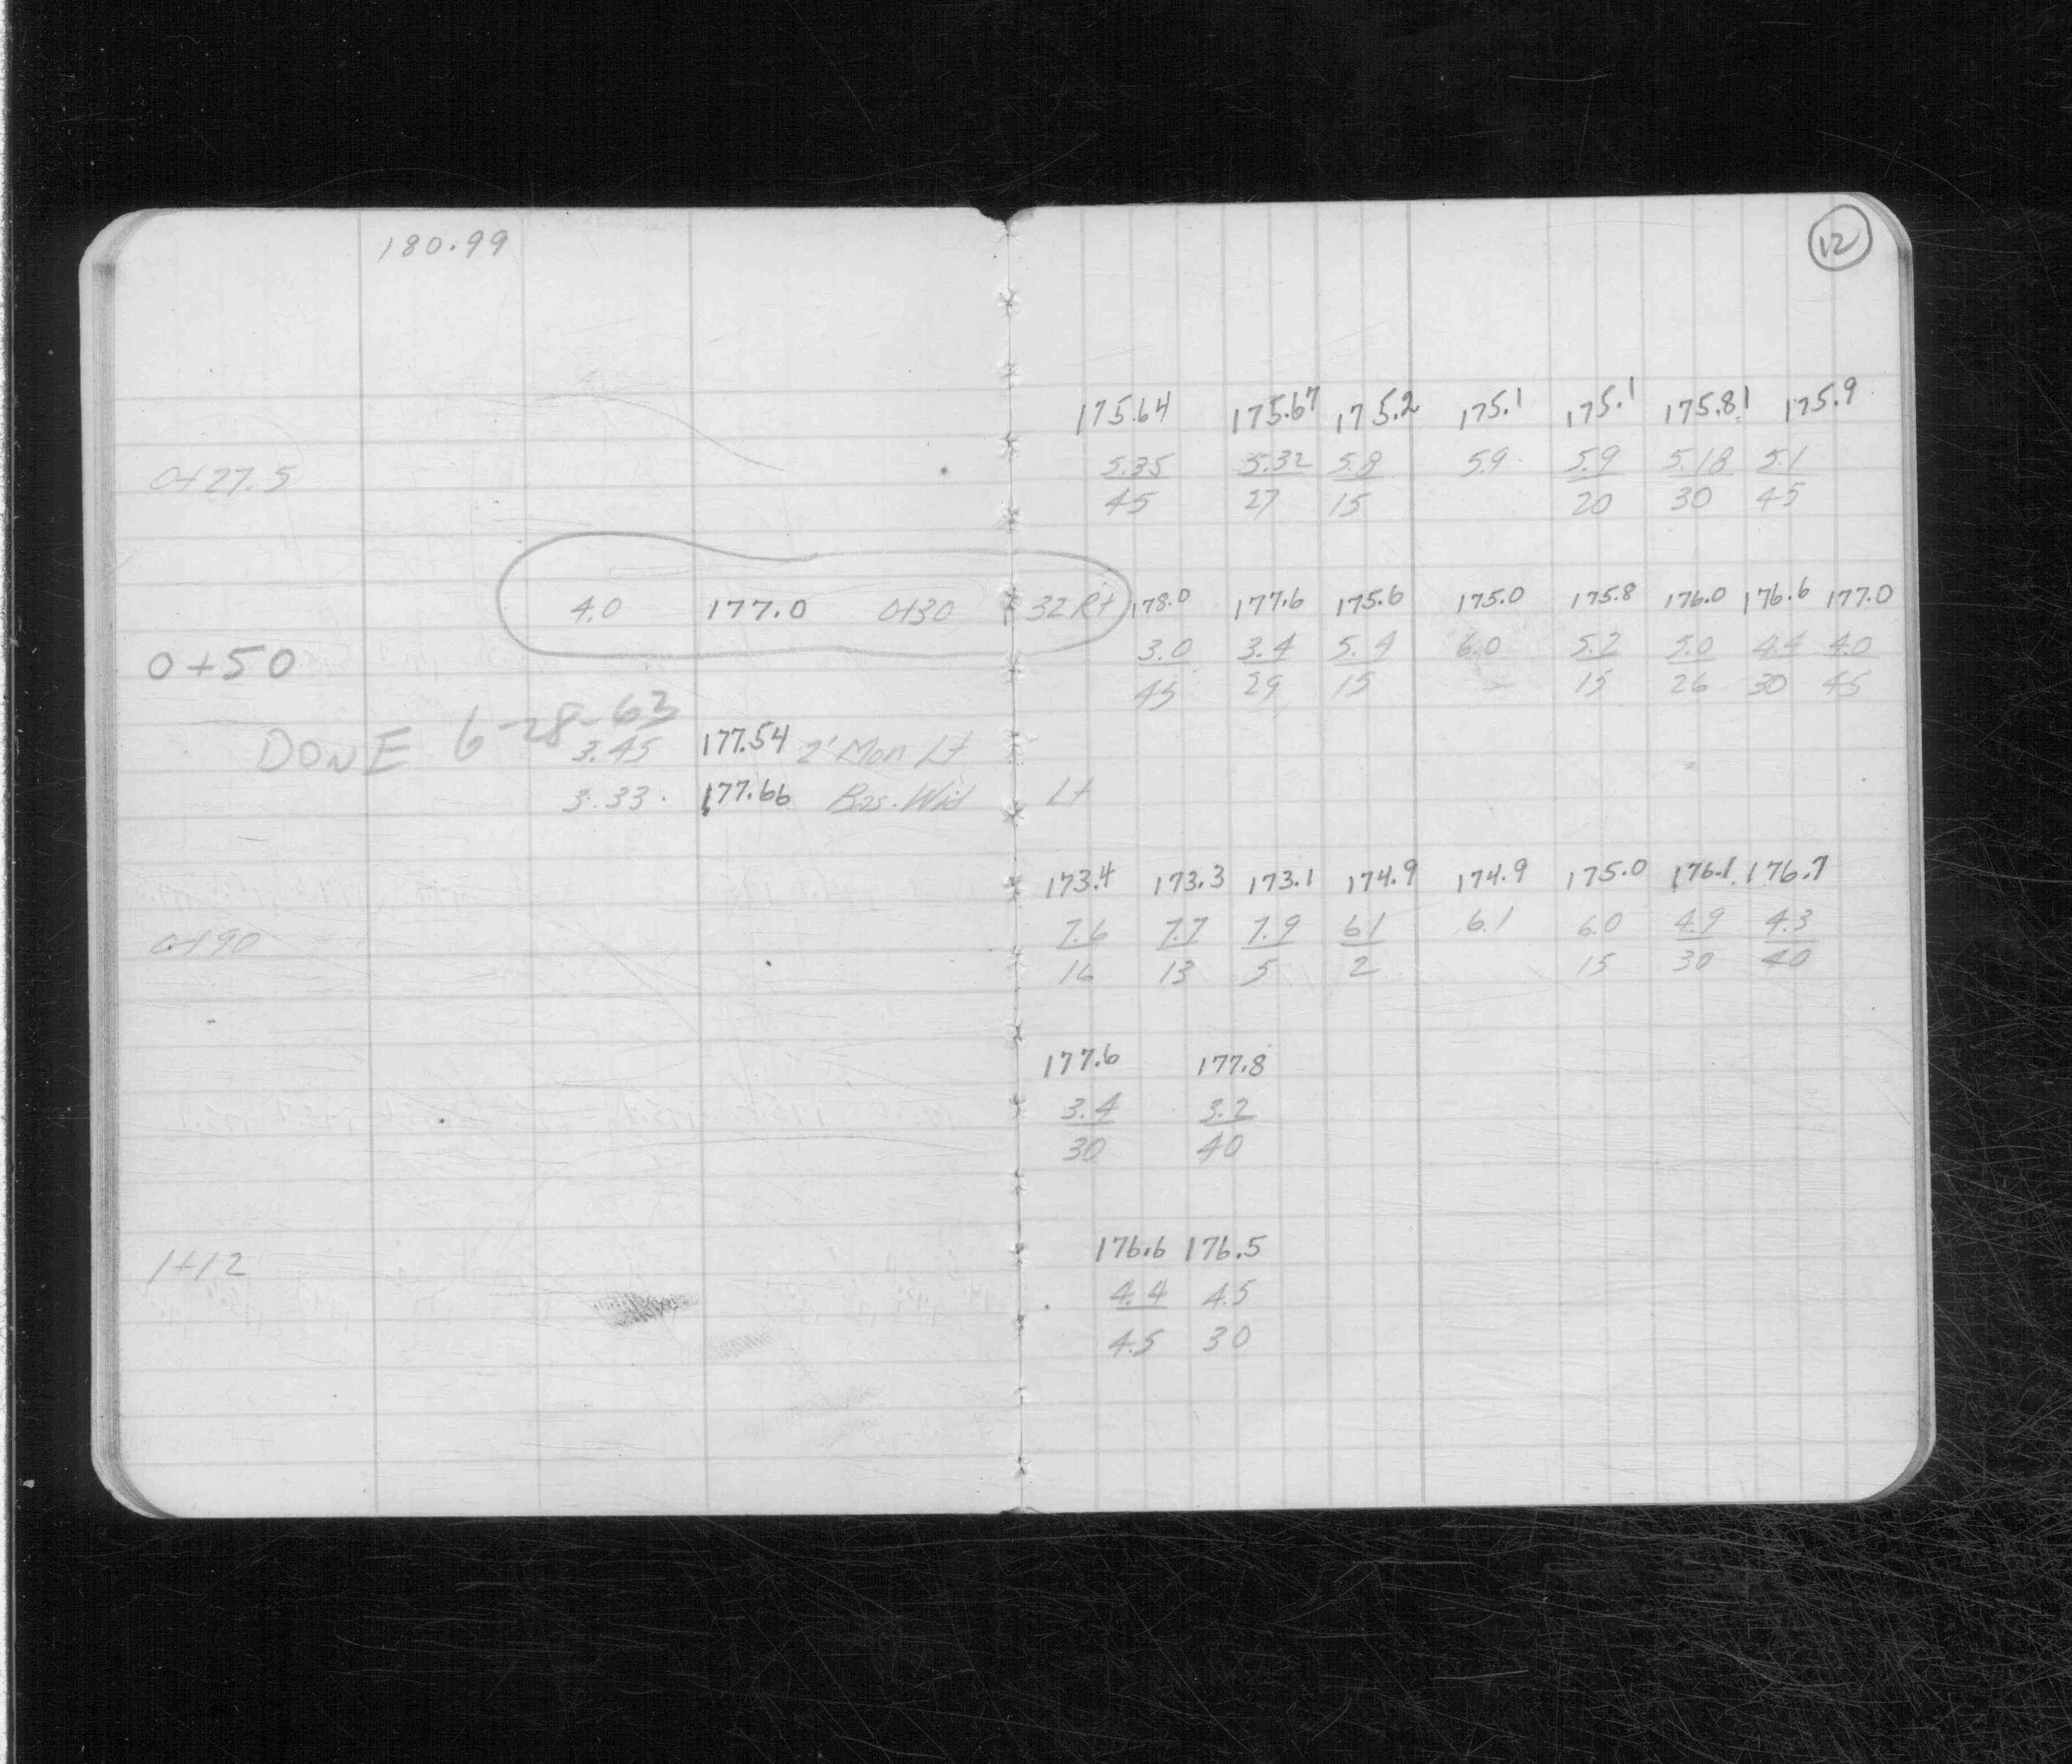 180.99
12
175.64 175.67 175.2 175.1 175.1 175.81 175.9
0+27.5 5.35 5.32 5.8 5.9 5.9 5.18 5.1
45 27 15 20 30 45
4.0 177.0 0+30 32 Rt 178.0 177.6 175.6 175.0 175.8 176.0 176.6 177.0
0+50 3.0 3.4 5.4 6.0 5.2 5.0 4.4 4.0
45 29 15 15 26 30 45
DONE 6-28-63
3.45 177.54 2' Mon Lt
3.33 177.66 Bas. Wid Lt
173.4 173.3 173.1 174.9 174.9 175.0 176.1 176.7
0+90 7.6 7.7 7.9 6.1 6.1 6.0 4.9 4.3
16 13 5 2 15 30 40
177.6 177.8
3.4 3.2
30 40
176.6 176.5
1+12 4.4 4.5
4.5 30